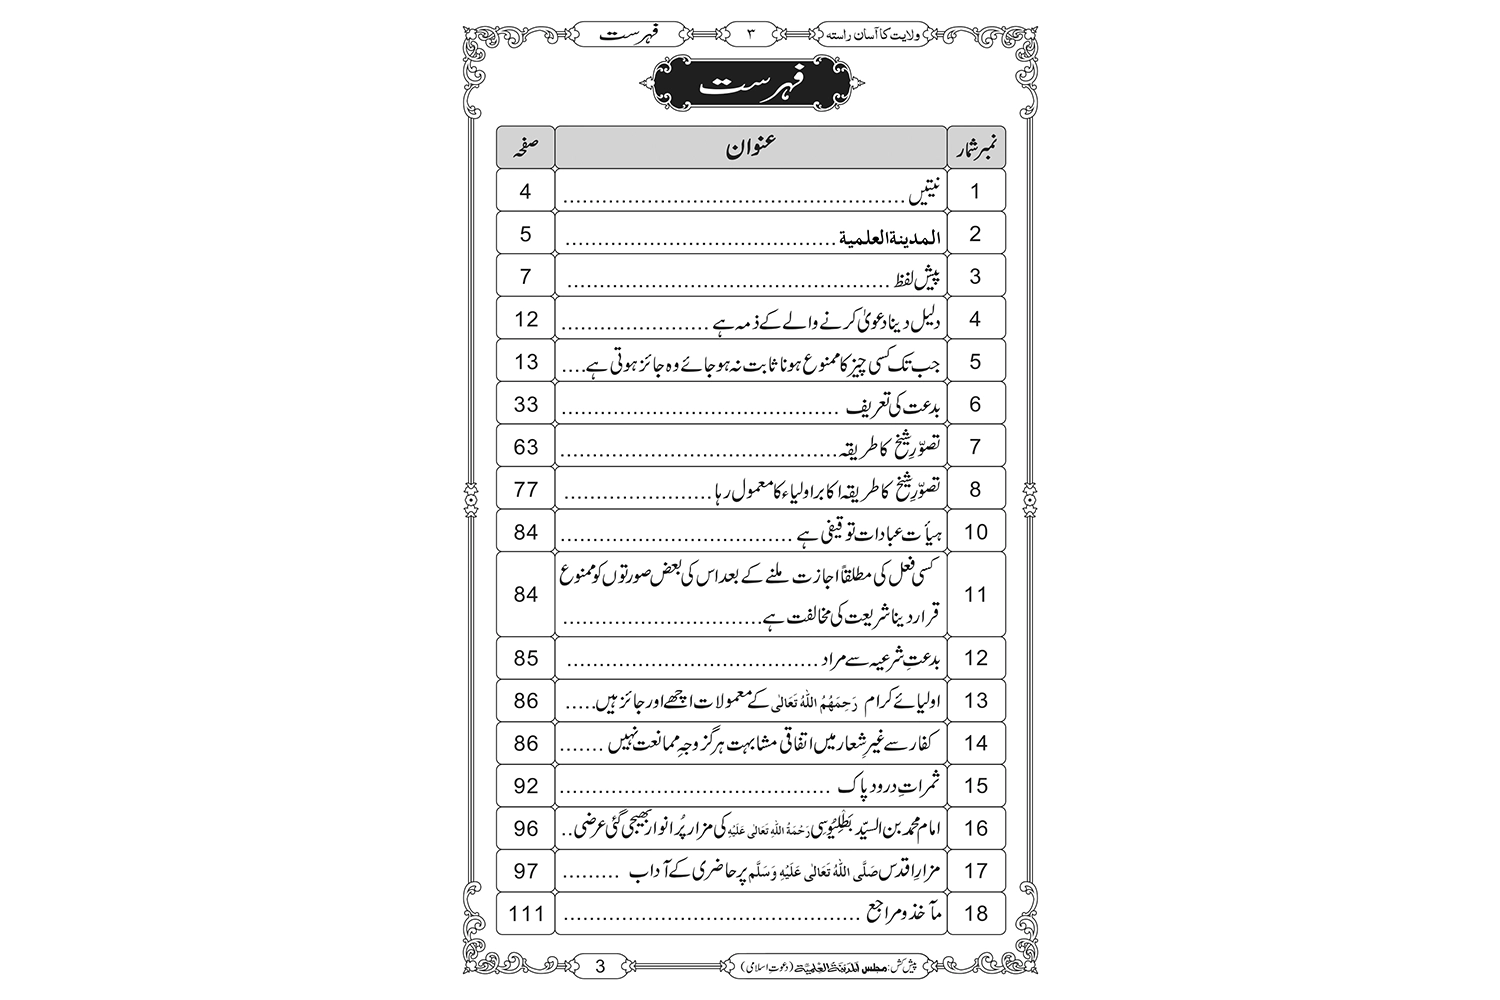 ولایت کا آسان راستہ ۳ فہرست
فہرست
نمبر شمار عنوان صفحہ
1 نیتیں ..................................................... 4
2 المدینۃ العلمیۃ .......................................... 5
3 پیش لفظ .................................................. 7
4 دلیل دینا دعویٰ کرنے والے کے ذمہ ہے ....................... 12
5 جب تک کسی چیز کا ممنوع ہونا ثابت نہ ہو جائے وہ جائز ہوتی ہے .... 13
6 بدعت کی تعریف ........................................... 33
7 تصوّرِ شیخ کا طریقہ ........................................... 63
8 تصوّرِ شیخ کا طریقہ اکابر اولیاء کا معمول رہا ....................... 77
10 ہیأت عبادات توقیفی ہے .................................... 84
11 کسی فعل کی مطلقاً اجازت ملنے کے بعد اس کی بعض صورتوں کو ممنوع
قرار دینا شریعت کی مخالفت ہے ............................... 84
12 بدعتِ شرعیہ سے مراد ....................................... 85
13 اولیائے کرام رَحِمَهُمُ اللهُ تَعَالٰی کے معمولات اچھے اور جائز ہیں ..... 86
14 کفار سے غیرِ شعار میں اتفاقی مشابہت ہرگز وجہِ ممانعت نہیں ....... 86
15 ثمراتِ درود پاک .......................................... 92
16 امام محمد بن السیّد بَطَلْیُوسِی رَحْمَةُ اللهِ تَعَالٰی عَلَيْهِ کی مزار پُر انوار بھیجی گئی عرضی .. 96
17 مزارِ اقدس صَلَّی اللهُ تَعَالٰی عَلَيْهِ وَسَلَّم پر حاضری کے آداب ......... 97
18 مآخذ و مراجع .............................................. 111
پیش کش: مجلس المدینۃ العلمیۃ (دعوتِ اسلامی) 3